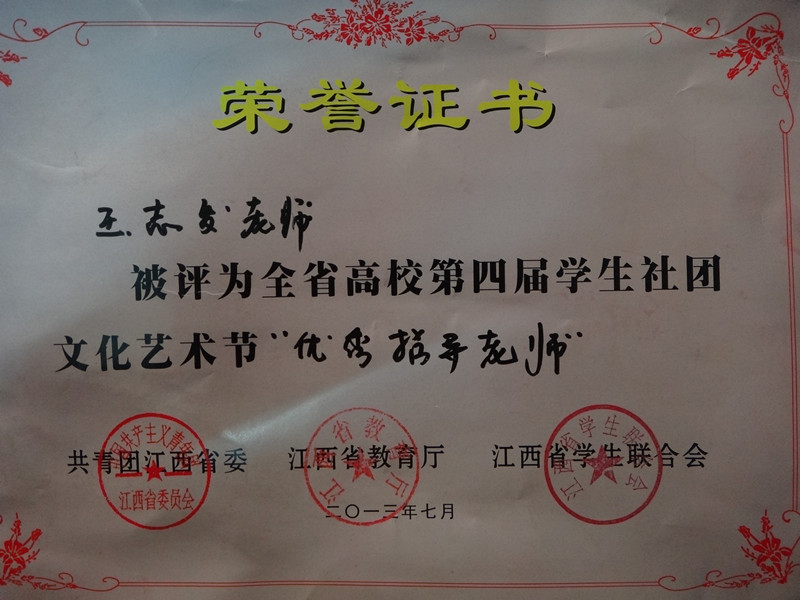 荣誉证书
王志发老师
被评为全省高校第四届学生社团
文化艺术节“优秀指导老师”
共青团江西省委 江西省教育厅 江西省学生联合会
中国共产主义青年团
江西省委员会
江西省教育厅
江西省学生联合会
二〇一三年七月